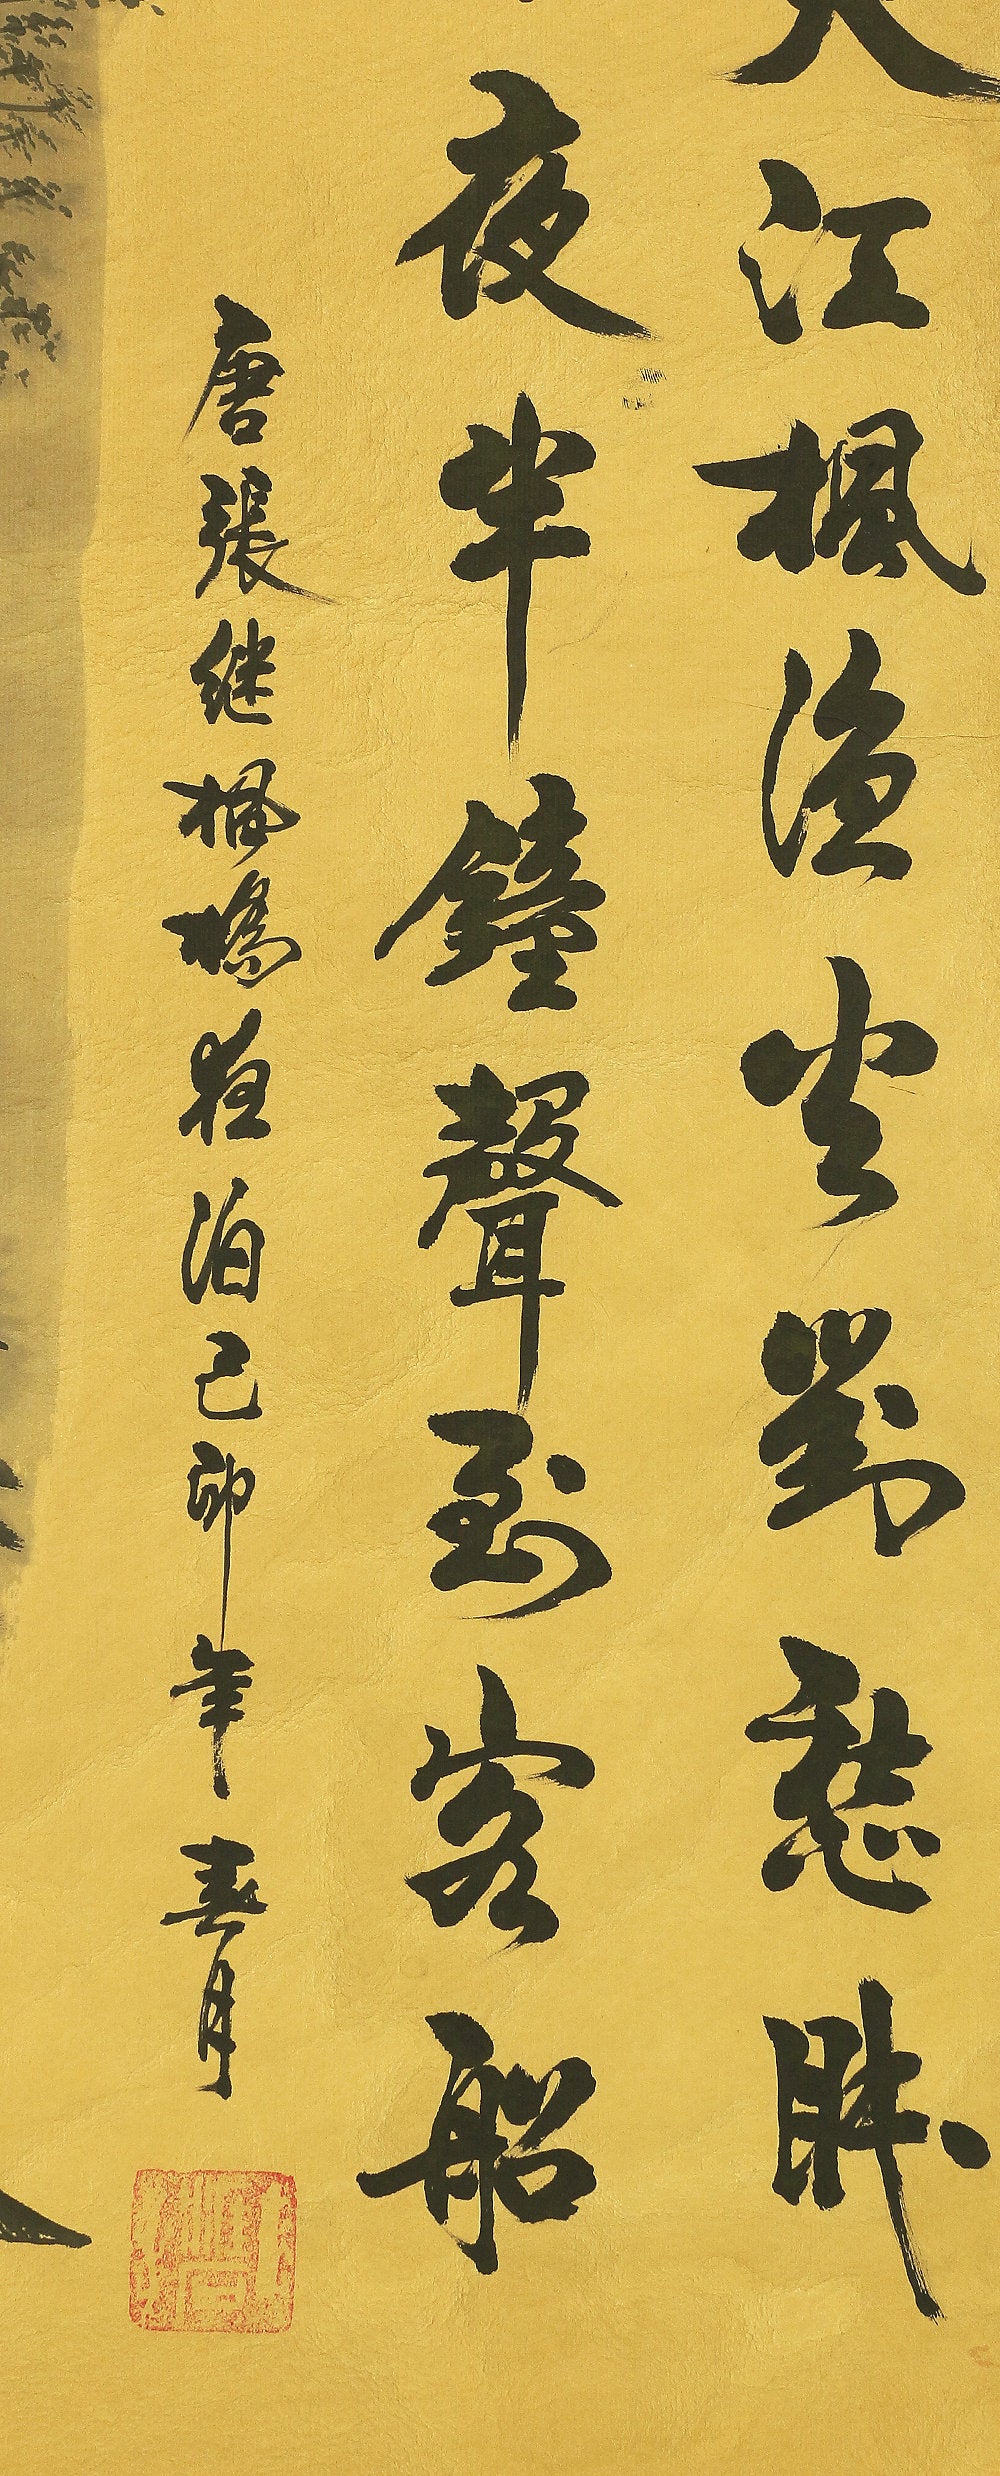 江楓漁火對愁眠
夜半鐘聲到客船
唐張继楓橋夜泊己卯年春月